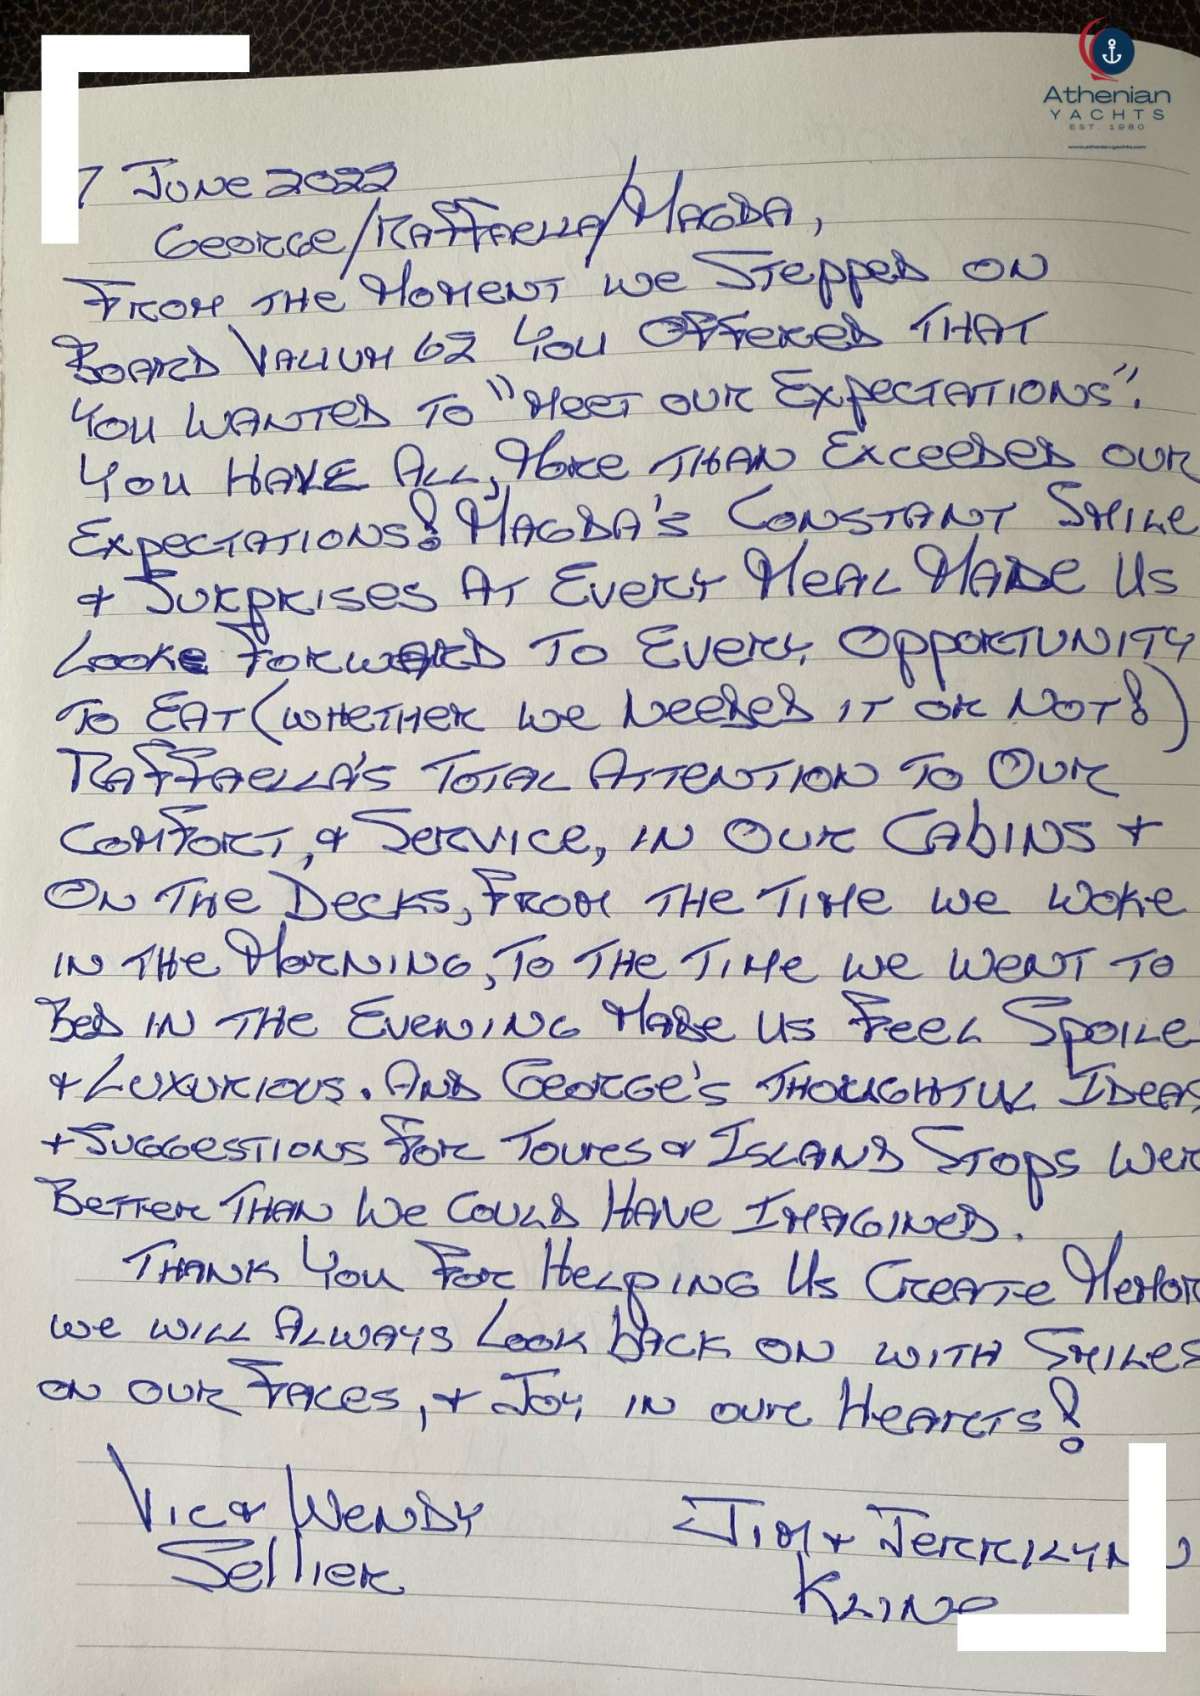 Athenian
YACHTS
EST. 1980
www.athenianyachts.com
7 June 2022
George/Raffaella/Magda,
From the moment we stepped on
board Valium 62 you offered that
you wanted to "meet our expectations".
You have all, more than exceeded our
expectations! Magda's constant smile
& surprises at every meal made us
look forward to every opportunity
to eat (whether we needed it or not!)
Raffaella's total attention to our
comfort, & service, in our cabins &
on the decks, from the time we woke
in the morning, to the time we went to
bed in the evening made us feel spoile
& luxurious. And George's thoughtful ideas
& suggestions for tours & island stops wer
better than we could have imagined.
Thank you for helping us create memor
we will always look back on with smiles
on our faces, & joy in our hearts!
Vic & Wendy
Sellier
Jim & Jerrilynn